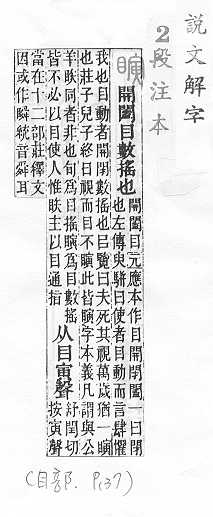 說文解字
2段注本
瞚
開闔目數搖也
開闔目元應本作目開閉闔一曰閉
也左傳臾駢曰使者目動而言肆懼
我也目動者開閉數搖也呂覽曰夫死其視萬歲猶一瞚
也莊子兒子終日視而目不瞚此皆瞚字本義凡謂與公
羊眣同者非也旬爲目搖瞚爲目數搖
皆不必以目使人惟眣主以目通指
从目寅聲
舒閏切
按寅聲
當在十二部莊釋文
因或作瞬統音舜耳
(目部. P.137)